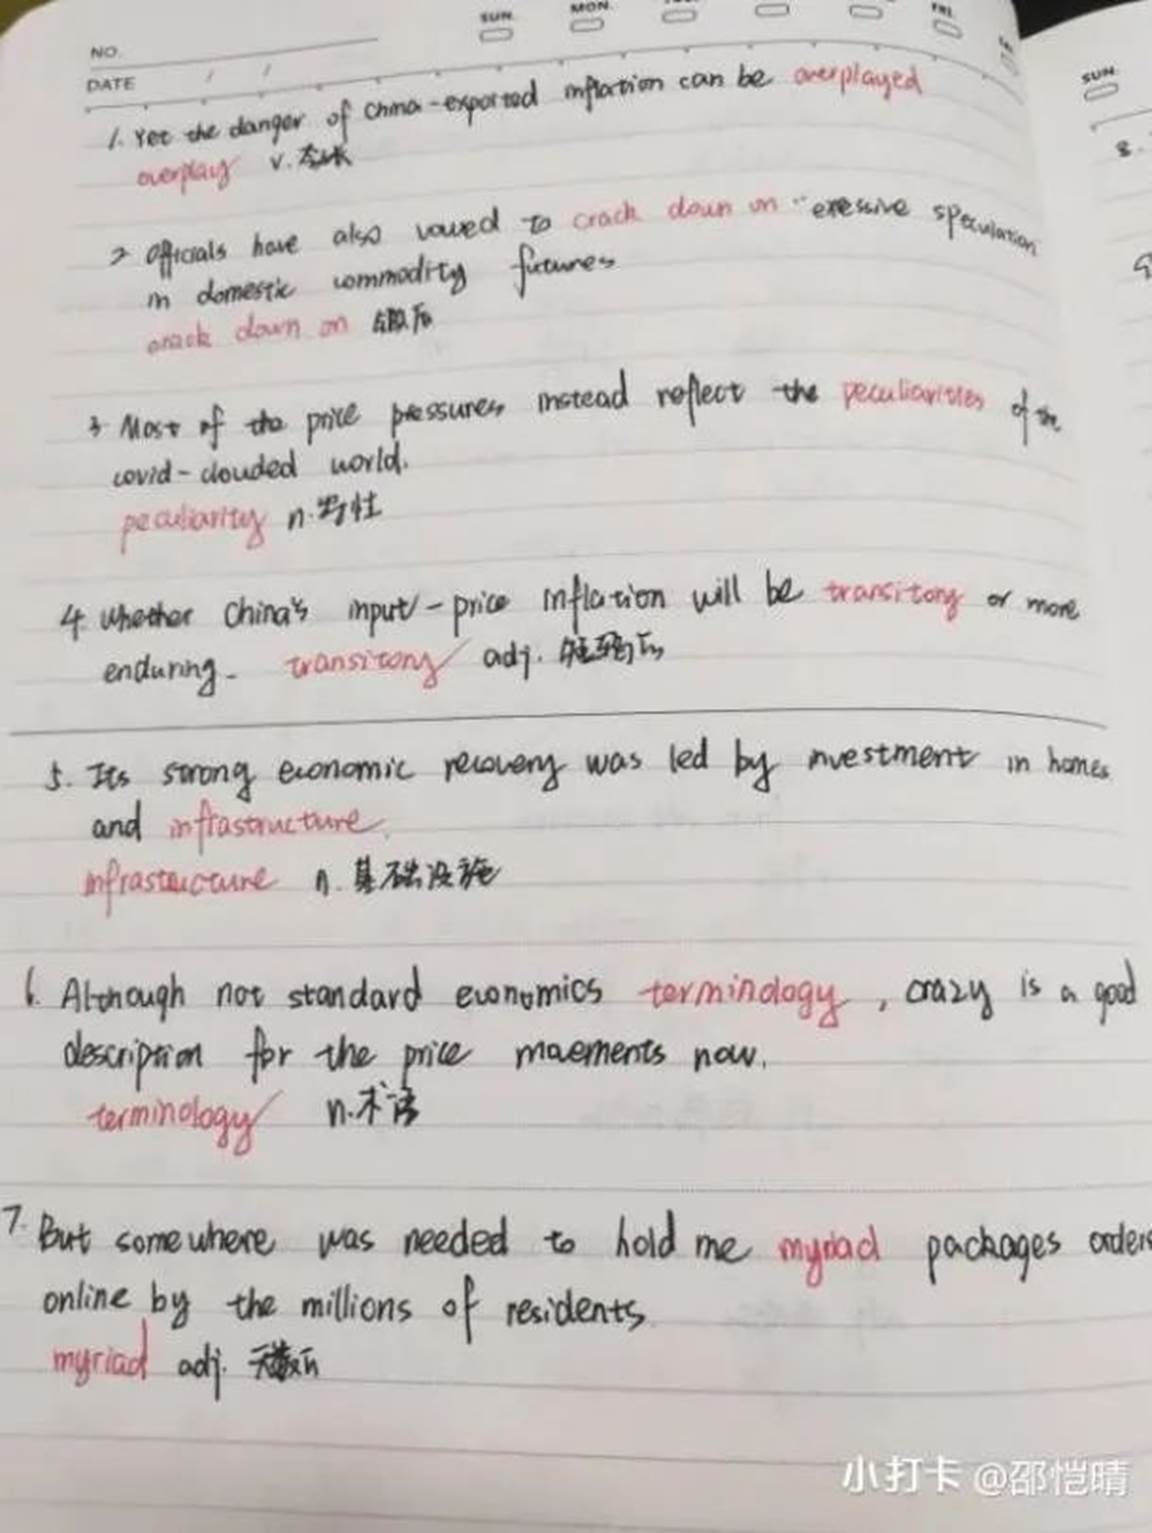 SUN. MON. FRI.
NO.
DATE / /
SUN.
1. Yet the danger of China-exported inflation can be overplayed
overplay v.夸张
8.
2 Officials have also vowed to crack down on "exessive speculation
in domestic commodity futures
crack down on
3. Most of the price pressures instead reflect the peculiarities of the
covid-clouded world.
peculiarity n.
4. Whether China's input-price inflation will be transitory or more
enduring. transitory adj.
5. Its strong economic recovery was led by investment in homes
and infrastructure.
infrastructure n.基础设施
6. Although not standard economics terminology, crazy is a good
description for the price movements now.
terminology n.术语
7. But somewhere was needed to hold me myriad packages orders
online by the millions of residents.
myriad adj. 无数的
小打卡 @邵恺晴